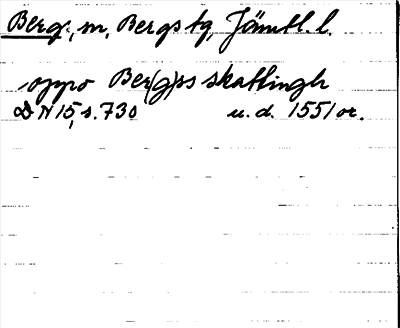 Berg, m, Bergs tg, Jämtl. l.
oppo Ber(g)ss skattingh
DN 15, s. 730 u. d. 1551 or.